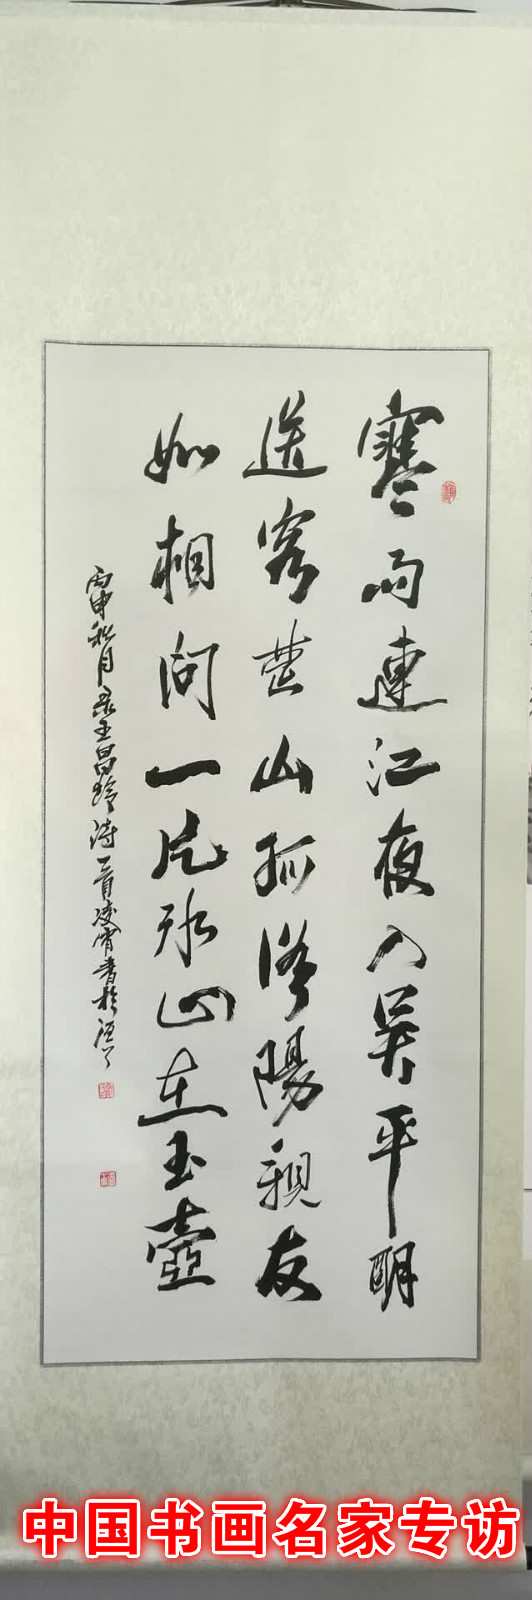 寒雨連江夜入吴平明
送客楚山孤洛陽親友
如相問一片冰心在玉壺
丙申秋月录王昌龄诗一首凌霄书於
中国书画名家专访